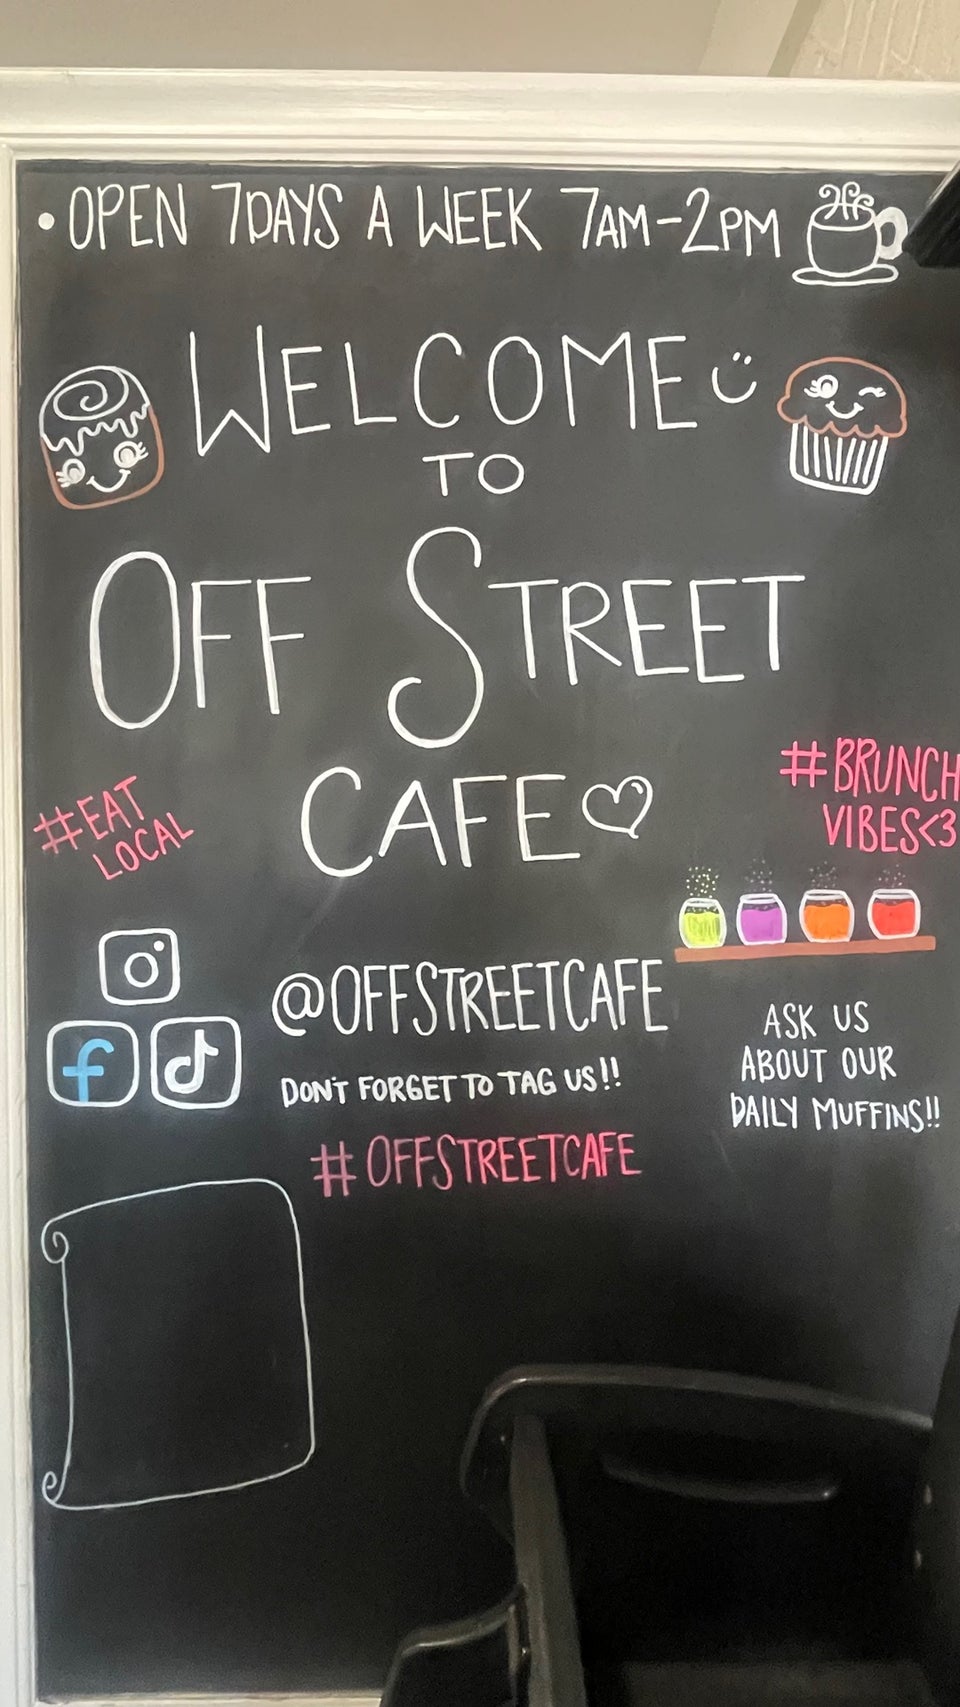 • OPEN 7DAYS A WEEK 7AM-2PM
WELCOME
TO
OFF STREET
CAFE
#EAT
LOCAL
#BRUNCH
VIBES<3
@OFFSTREETCAFE
DON'T FORGET TO TAG US!!
#OFFSTREETCAFE
ASK US
ABOUT OUR
DAILY MUFFINS!!